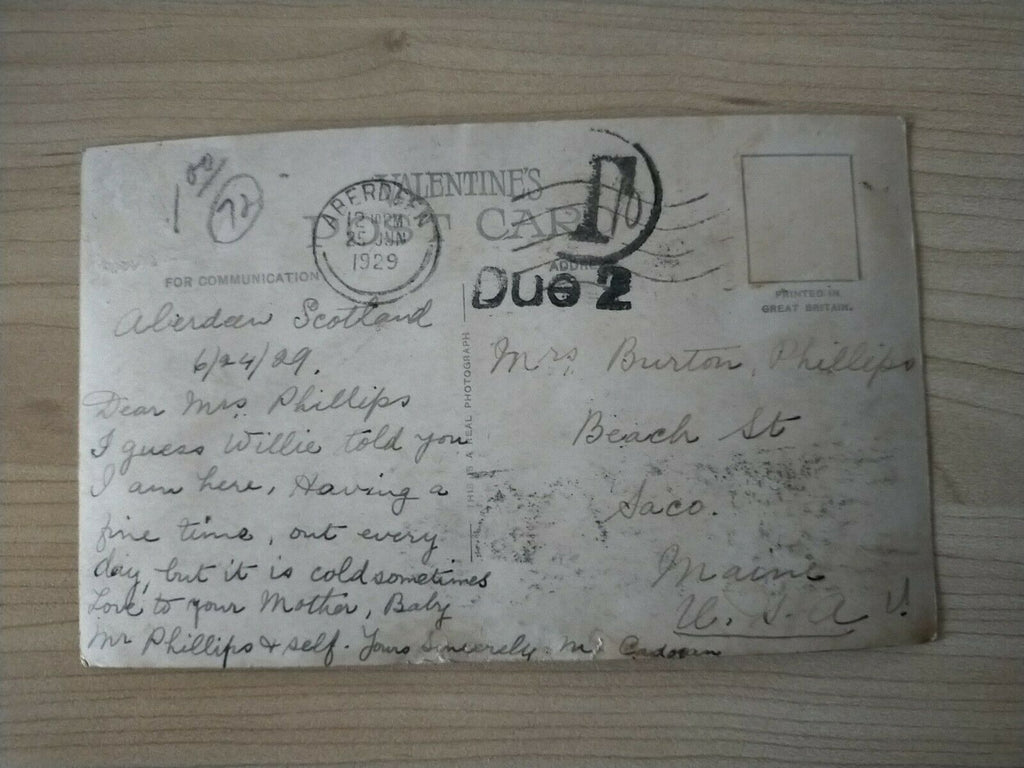 1 00/
72
VALENTINE'S
POST CARD
ABERDEEN
12 PM
25 JUN
1929
Due 2
FOR COMMUNICATION
ADDRE
PRINTED IN
GREAT BRITAIN.
THIS IS A REAL PHOTOGRAPH
Aberdeen Scotland
6/24/29.
Dear Mrs Phillips
I guess Willie told you
I am here, Having a
fine time, out every
day, but it is cold sometimes
Love to your Mother, Baby
Mr Phillips & self. Yours Sincerely
Mrs Burton, Phillips
Beach St
Saco.
Maine
U.S.A